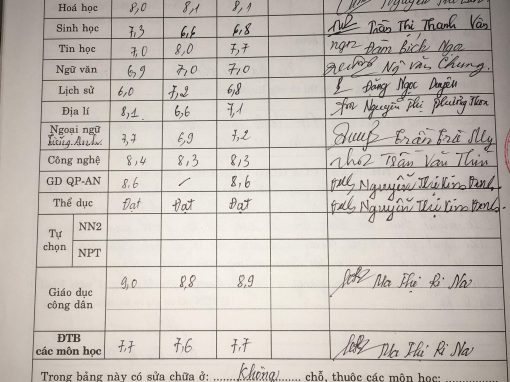 Hoá học 8,0 8,1 8,1
Sinh học 7,3 6,6 6,8 Trần Thị Thanh Vân
Tin học 7,0 8,0 7,7 Đàm Bích Nga
Ngữ văn 6,9 7,0 7,0 Ngô Văn Chung
Lịch sử 6,0 7,2 6,8 Đặng Ngọc Duyên
Địa lí 8,1 6,6 7,1 Nguyễn Thị Phương
Ngoại ngữ
Tiếng Anh 7,7 6,9 7,2 Trần Trà My
Công nghệ 8,4 8,3 8,3 Trần Văn Thìn
GD QP-AN 8,6 / 8,6 Nguyễn Thị Kim Oanh
Thể dục Đạt Đạt Đạt Nguyễn Thị Kim Oanh
Tự chọn NN2
NPT
Giáo dục
công dân 9,0 8,8 8,9 Ma Thị Ri Na
ĐTB
các môn học 7,7 7,6 7,7 Ma Thị Ri Na
Trong bảng này có sửa chữa ở: Không chỗ, thuộc các môn học: